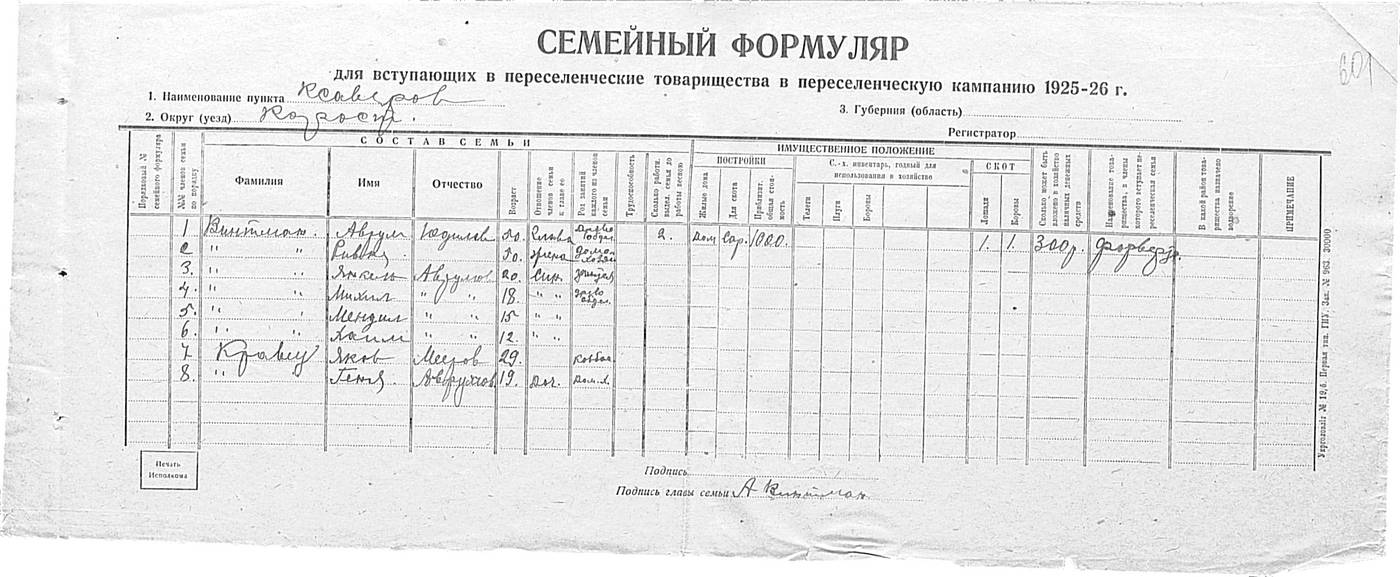 СЕМЕЙНЫЙ ФОРМУЛЯР
601
для вступающих в переселенческие товарищества в переселенческую кампанию 1925-26 г.
1. Наименование пункта Ксаверов
3. Губерния (область)
2. Округ (уезд) Корост.
Регистратор
СОСТАВ СЕМЬИ
ИМУЩЕСТВЕННОЕ ПОЛОЖЕНИЕ
ПОСТРОЙКИ
С.-х. инвентарь, годный для использования в хозяйстве
СКОТ
Порядковый № семейного формуляра
№№ членов семьи по порядку
Фамилия
Имя
Отчество
Возраст
Отношение членов семьи к главе ее
Род занятий каждого из членов семьи
Трудоспособность
Сколько работи. выдел. семья до работы весною
Жилые дома
Для скота
Приблизит. общая стоимость
Телеги
Плуги
Бороны
Лошади
Коровы
Сколько может быть вложено в хозяйство наличных денежных средств
Наименование товарищества, в члены которого вступает переселенческая семья
В какой район товарищества назначено водворение
ПРИМЕЧАНИЕ
1 Винтман. Аврум Юдилов 50. Глава 2. дом Сар. 1000. 1. 1. 300 р.
2 " " 50. жена домохозяй
3. " " Янкель Аврумов 20. Сын
4. " " Михил " " 18. " "
5. " " Мендил " " 15 " "
6. " " Хаим " " 12. " "
7 Кравец Яков Мееров 29.
8. " " Геня. Аврумов. 19. Доч. дом. х.
Печать Исполкома
Подпись
Подпись главы семьи А Винтман
Укрголовліт № 19, б. Первая тип. ГИУ, Зак. № 963. 30000